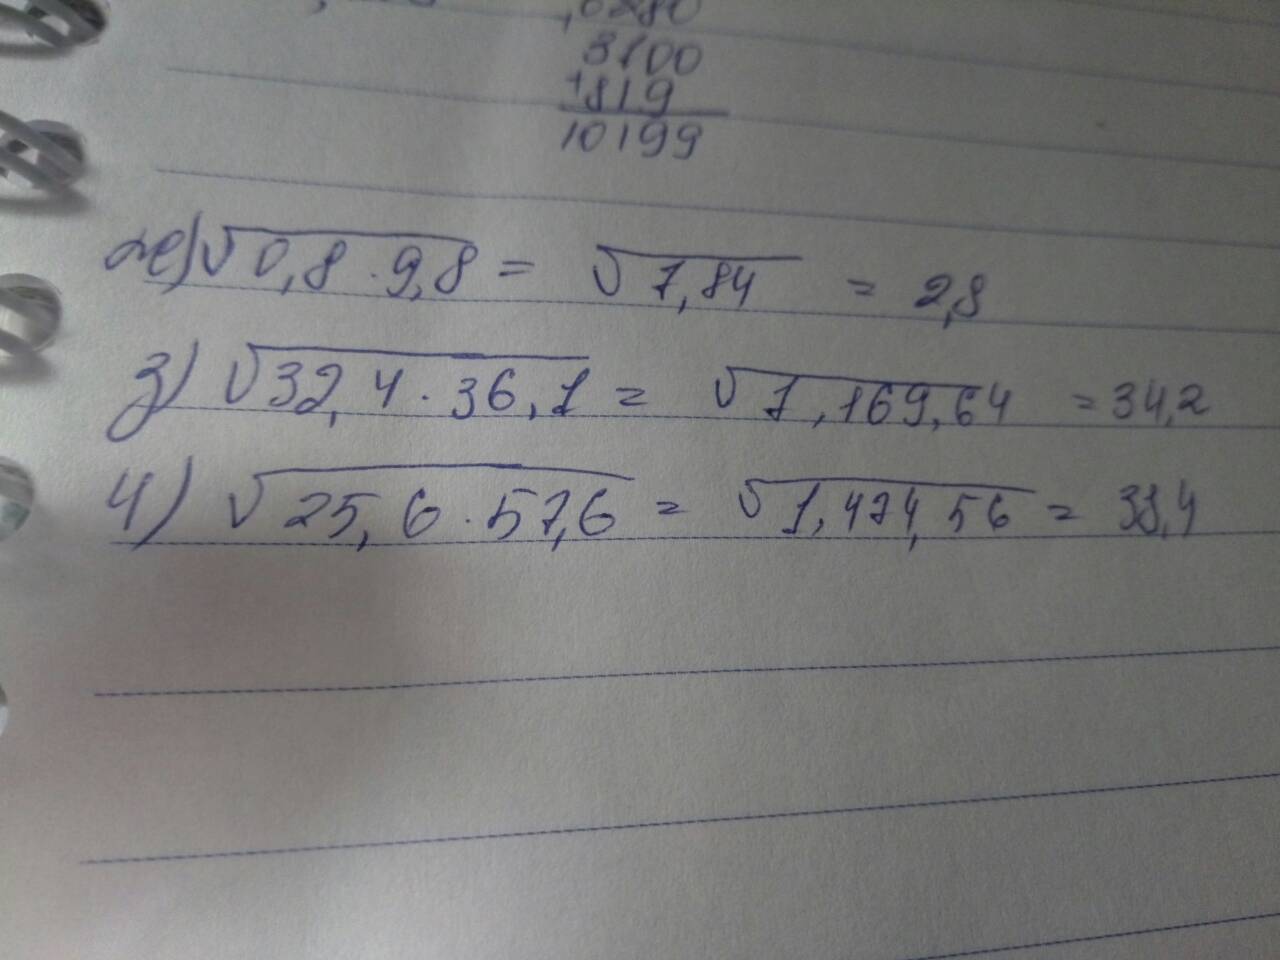 3100
+819
10199
же) √0,8 · 9,8 = √7,84 = 2,8
з) √32,4 · 36,1 = √1,169,64 = 34,2
4) √25,6 · 57,6 = √1,474,56 = 38,4